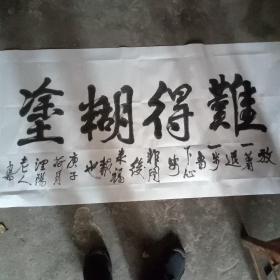 難得糊塗
放一著
退一步
當下心
安
非圖
後
來福
報
也
庚子
荷月
老人
書